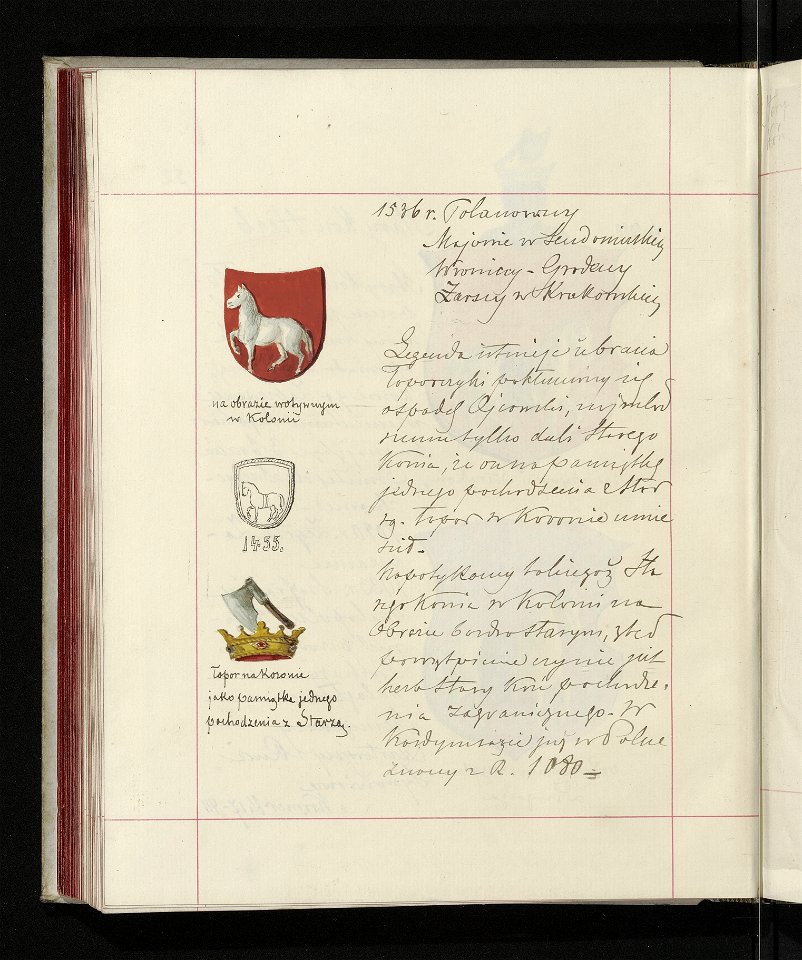 1536 r. Polanowscy
Majowie w Sendomirskiej
Wroniccy - Grodccy
Zarscy w Krakowskiej
Legenda istnieje iż bracia
Toporczyki pokłóciwszy się
o spadek Ojcowski,
tylko dali Starego
Konia, że on na pamiątkę
jednego pochodzenia z Star
zą. topór w Koronie umie
ścił.
Napotykamy takiegoż Sta
rego Konia w Kolonii na
Obrazie bardzo starym, zkąd
powątpienie czynię jest
herb Stary Koń pochodze-
nia zagranicznego. - W
Każdym razie już w Polsce
znany z R. 1080 =
na obrazie wotywnym
w Kolonii
1455.
Topor na Koronie
jako pamiątka jednego
pochodzenia z Starzą.